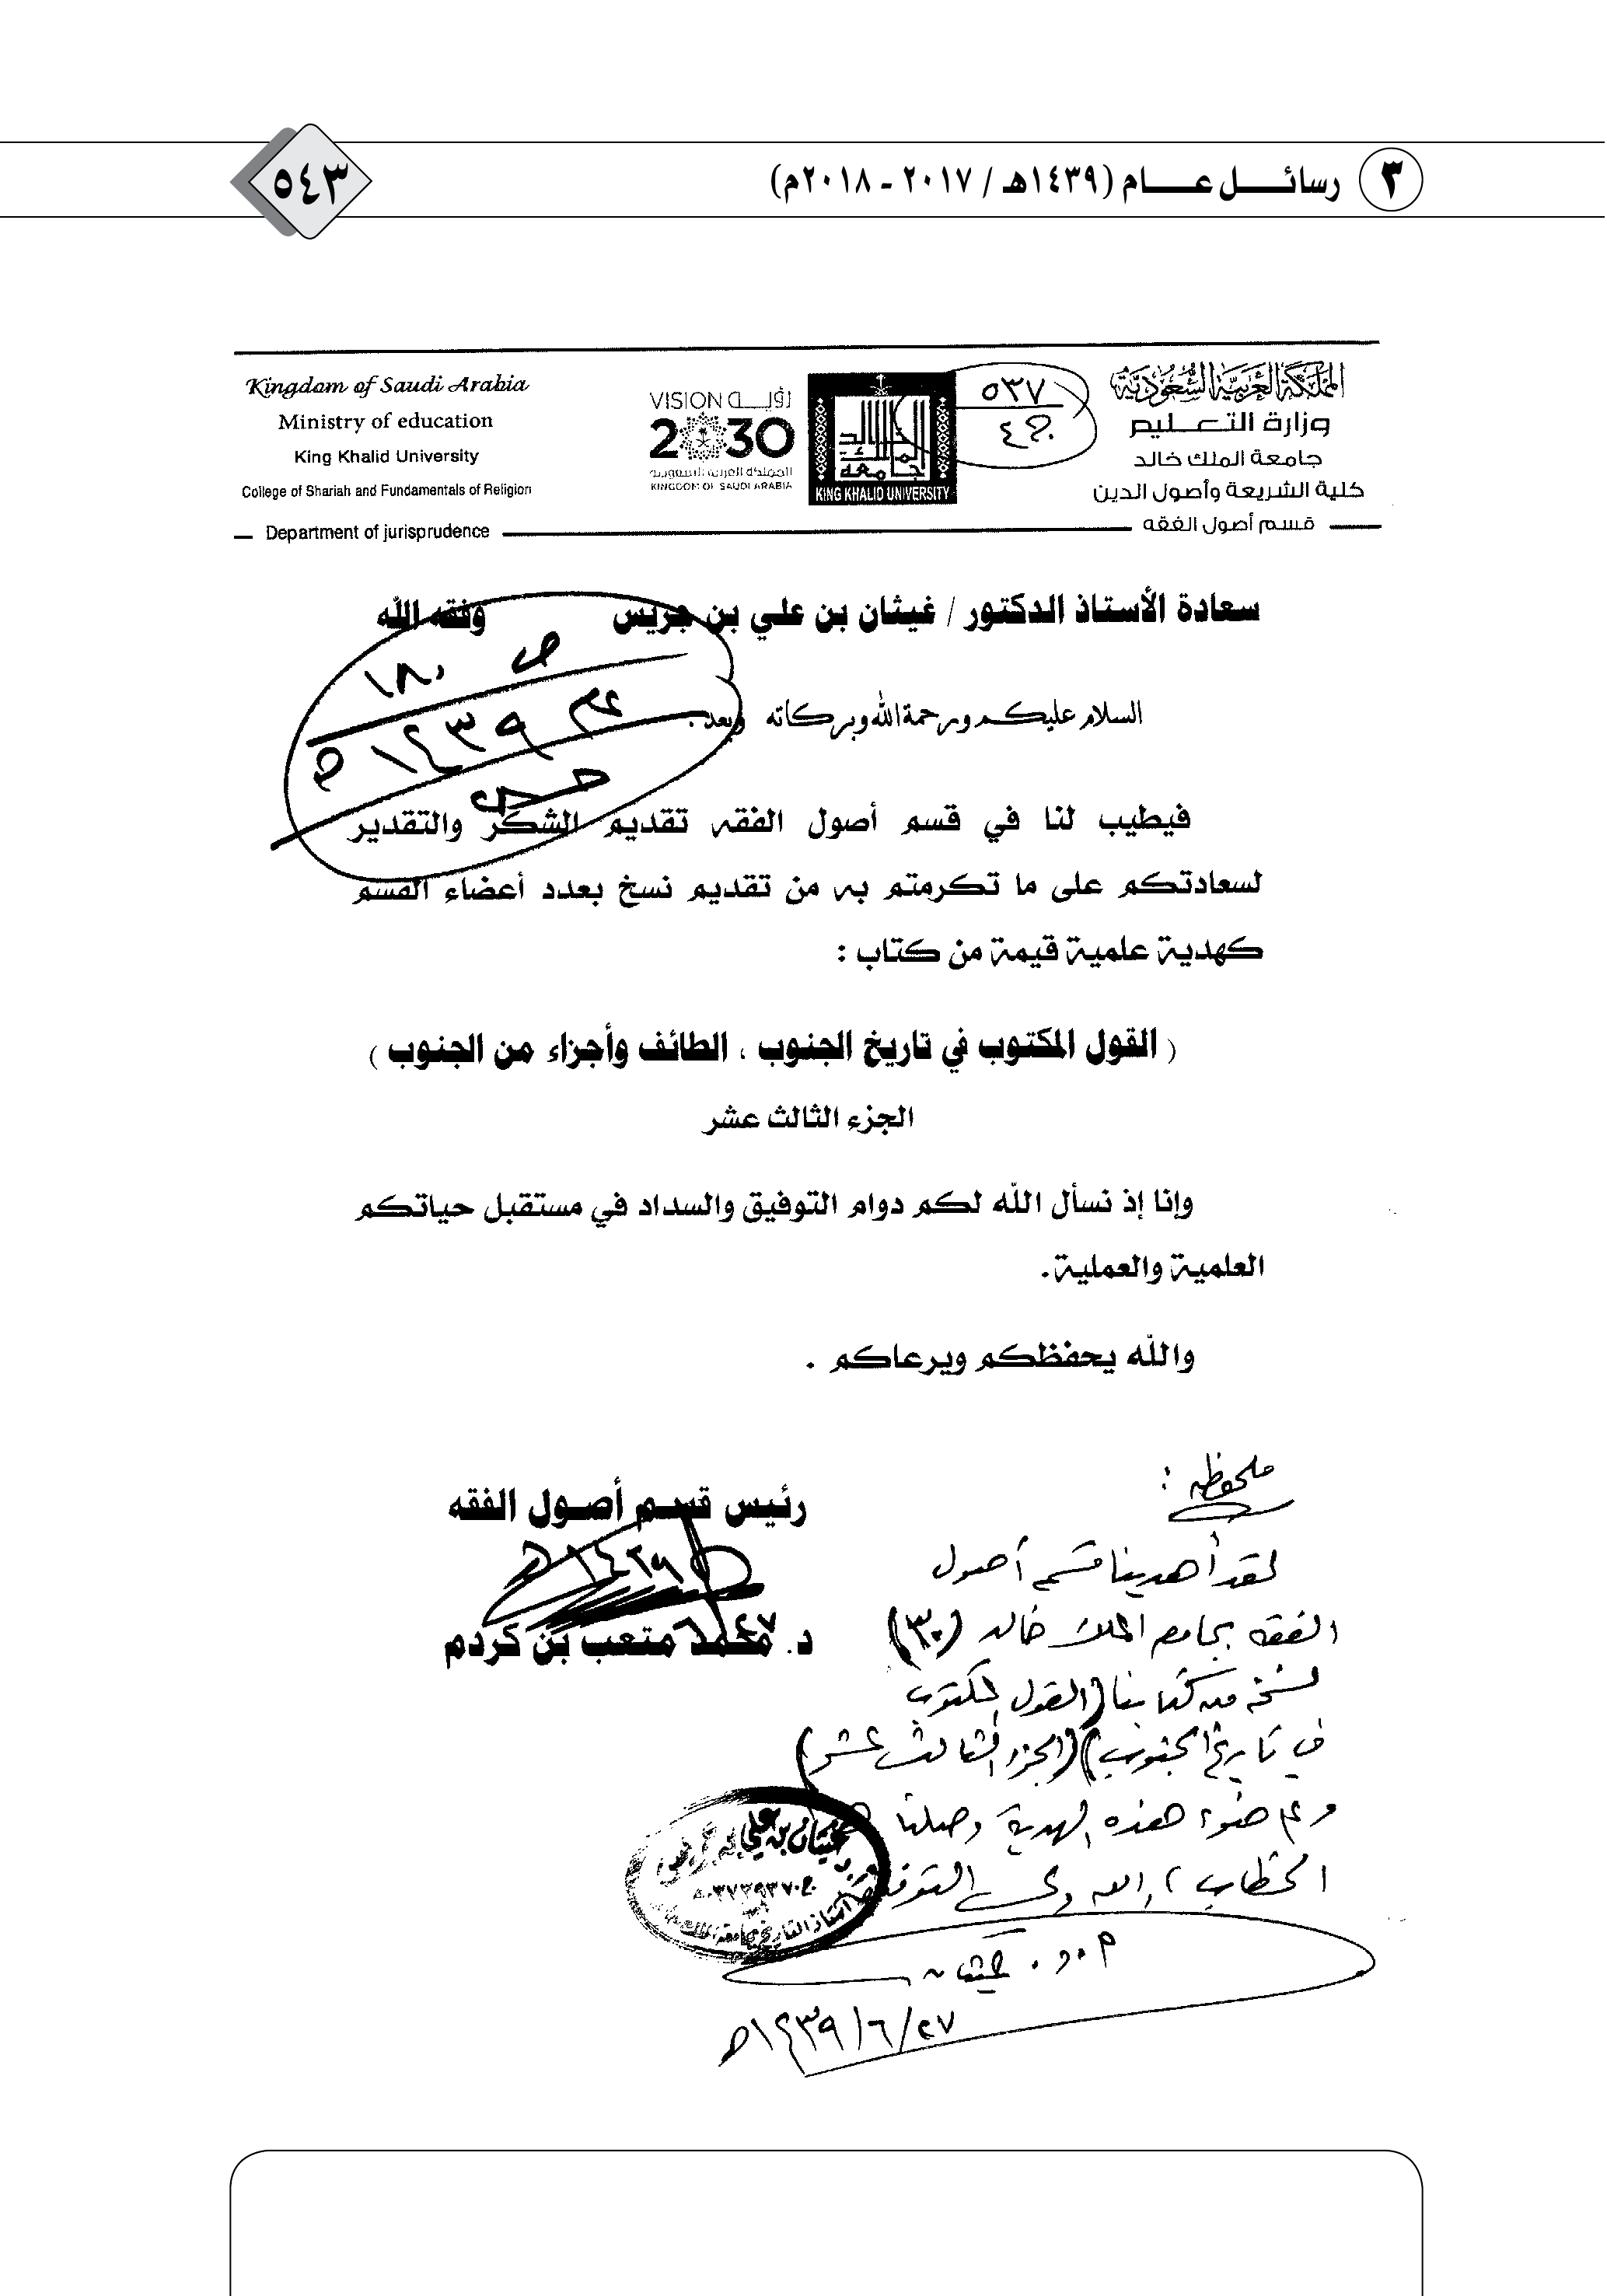 ٣ رسائل عام (١٤٣٩هـ / ٢٠١٧ - ٢٠١٨م)
٥٤٣
المملكة العربية السعودية
وزارة التعليم
جامعة الملك خالد
كلية الشريعة وأصول الدين
قسم أصول الفقه
٥٣٧
٤
KING KHALID UNIVERSITY
VISION رؤية
2030
المملكة العربية السعودية
KINGDOM OF SAUDI ARABIA
Kingdom of Saudi Arabia
Ministry of education
King Khalid University
College of Shariah and Fundamentals of Religion
Department of jurisprudence
سعادة الأستاذ الدكتور / غيثان بن علي بن جريس وفقه الله
ص ١٨٠
عام ١٤٣٩هـ
السلام عليكم ورحمة الله وبركاته وبعد.
فيطيب لنا في قسم أصول الفقه تقديم الشكر والتقدير
لسعادتكم على ما تكرمتم به من تقديم نسخ بعدد أعضاء القسم
كهدية علمية قيمة من كتاب :
( القول المكتوب في تاريخ الجنوب ، الطائف وأجزاء من الجنوب )
الجزء الثالث عشر
وإنا إذ نسأل الله لكم دوام التوفيق والسداد في مستقبل حياتكم
العلمية والعملية.
والله يحفظكم ويرعاكم .
رئيس قسم أصول الفقه
د. محمد متعب بن كردم
ملحوظة :
لقد أهدينا قسم أصول
الفقه بجامعة الملك خالد (٣٠)
نسخة من كتابنا (القول المكتوب
في تاريخ الجنوب) (الجزء الثالث عشر)
وعلى ضوء هذه الهدية وصلنا هذا
الخطاب، والله ولي التوفيق
أ.د. غيثان
٢٧/٦/١٤٣٩هـ